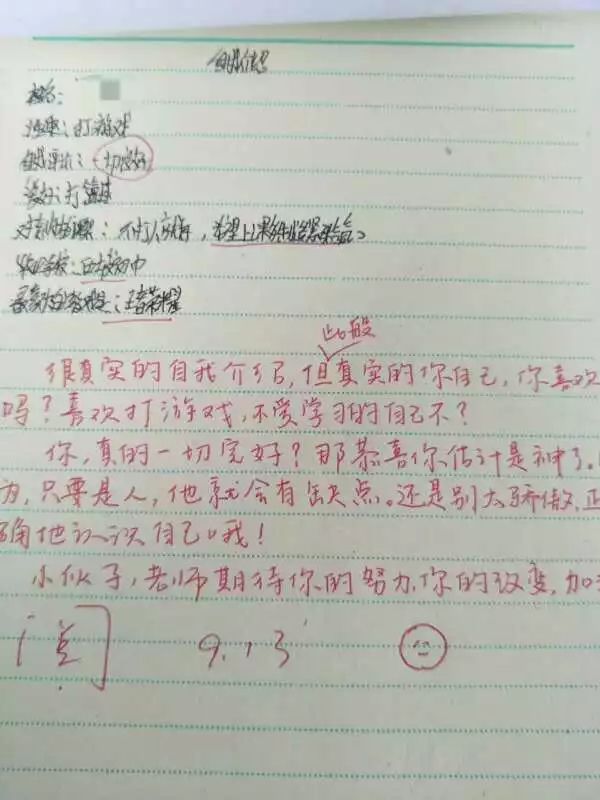 自我信息
姓名：
强项：打游戏
自我评价：一切完好
爱好：打篮球
对老师的：不打人就好，希望上课
毕业学校：中
喜欢的：王者荣耀
此般
很真实的自我介绍，但真实的你自己，你喜欢
吗？喜欢打游戏，不爱学习的自己不？
你，真的一切完好？那恭喜你估计是神了。
为，只要是人，他就会有缺点。还是别太骄傲，正
确地认识自己哦！
小伙子，老师期待你的努力，你的改变，加
阅 9.13